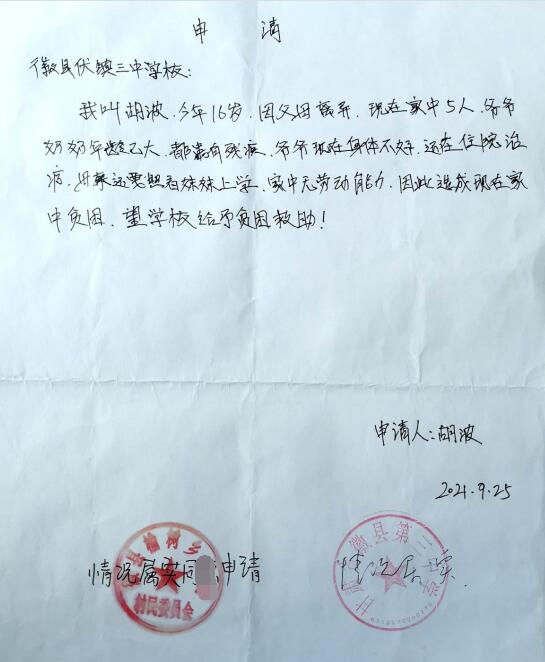 申 请
徽县伏镇三中学校:
我叫胡波,今年16岁,因父母离异,现在家中5人,爷爷
奶奶年龄已大,都患有残疾,爷爷现在身体不好,还在住院治
病,母亲还要照看妹妹上学,家中无劳动能力,因此造成现在家
中贫困,望学校给予贫困救助!
申请人:胡波
2021.9.25
榆树乡
情况属实同 申请
村民委员会
徽县第三
情况属实